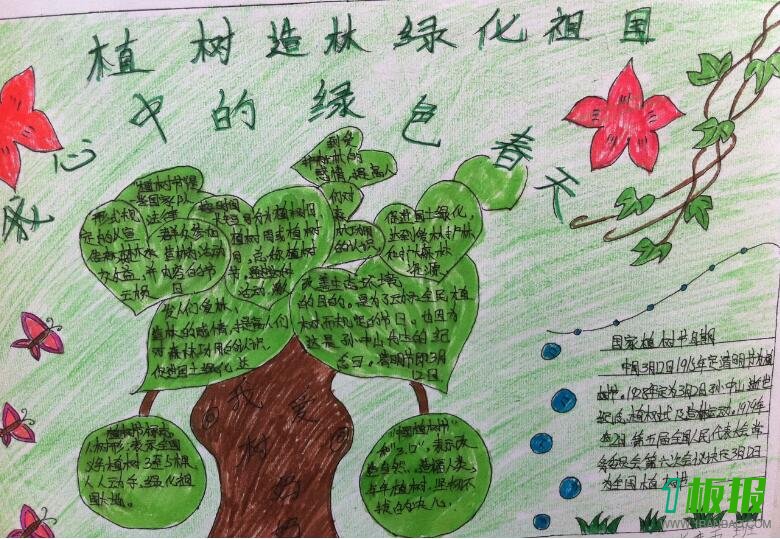 植树造林绿化祖国
心中的绿色春天
植树节是
些国家以
法律
形式规
定的以宣
传
并动
员群众参加
造林活动
为内容的节
日
促进国土绿化,
达到
爱林护林
和扩大森林
资源
改善生态环境
的目的,是为了动员全民植
树而规定的节日,也因为
这是孙中山先生的纪
念日,
3月
12日
发人们爱林
造林的感情,提高人们
对森林功用的认识
促进国土绿化,达
我爱
树妈妈
植树节标志
人树形,表示全国
义务植树3至5棵,
人人动手,绿化祖
国大地。
"中国植树节"
和"3.12",表示改
造自然,造福人类,
年年植树,坚韧不
拔的决心。
国家植树节日期
中国3月12日1915年定清明节为植
树节,1928年定为3月12日孙中山逝世
纪念,植树式及造林运动,1979年
第五届全国人民代表大会常
务委员会第六次会议决定3月12日
为全国植树节
板报
WWW.1BANBAO.COM